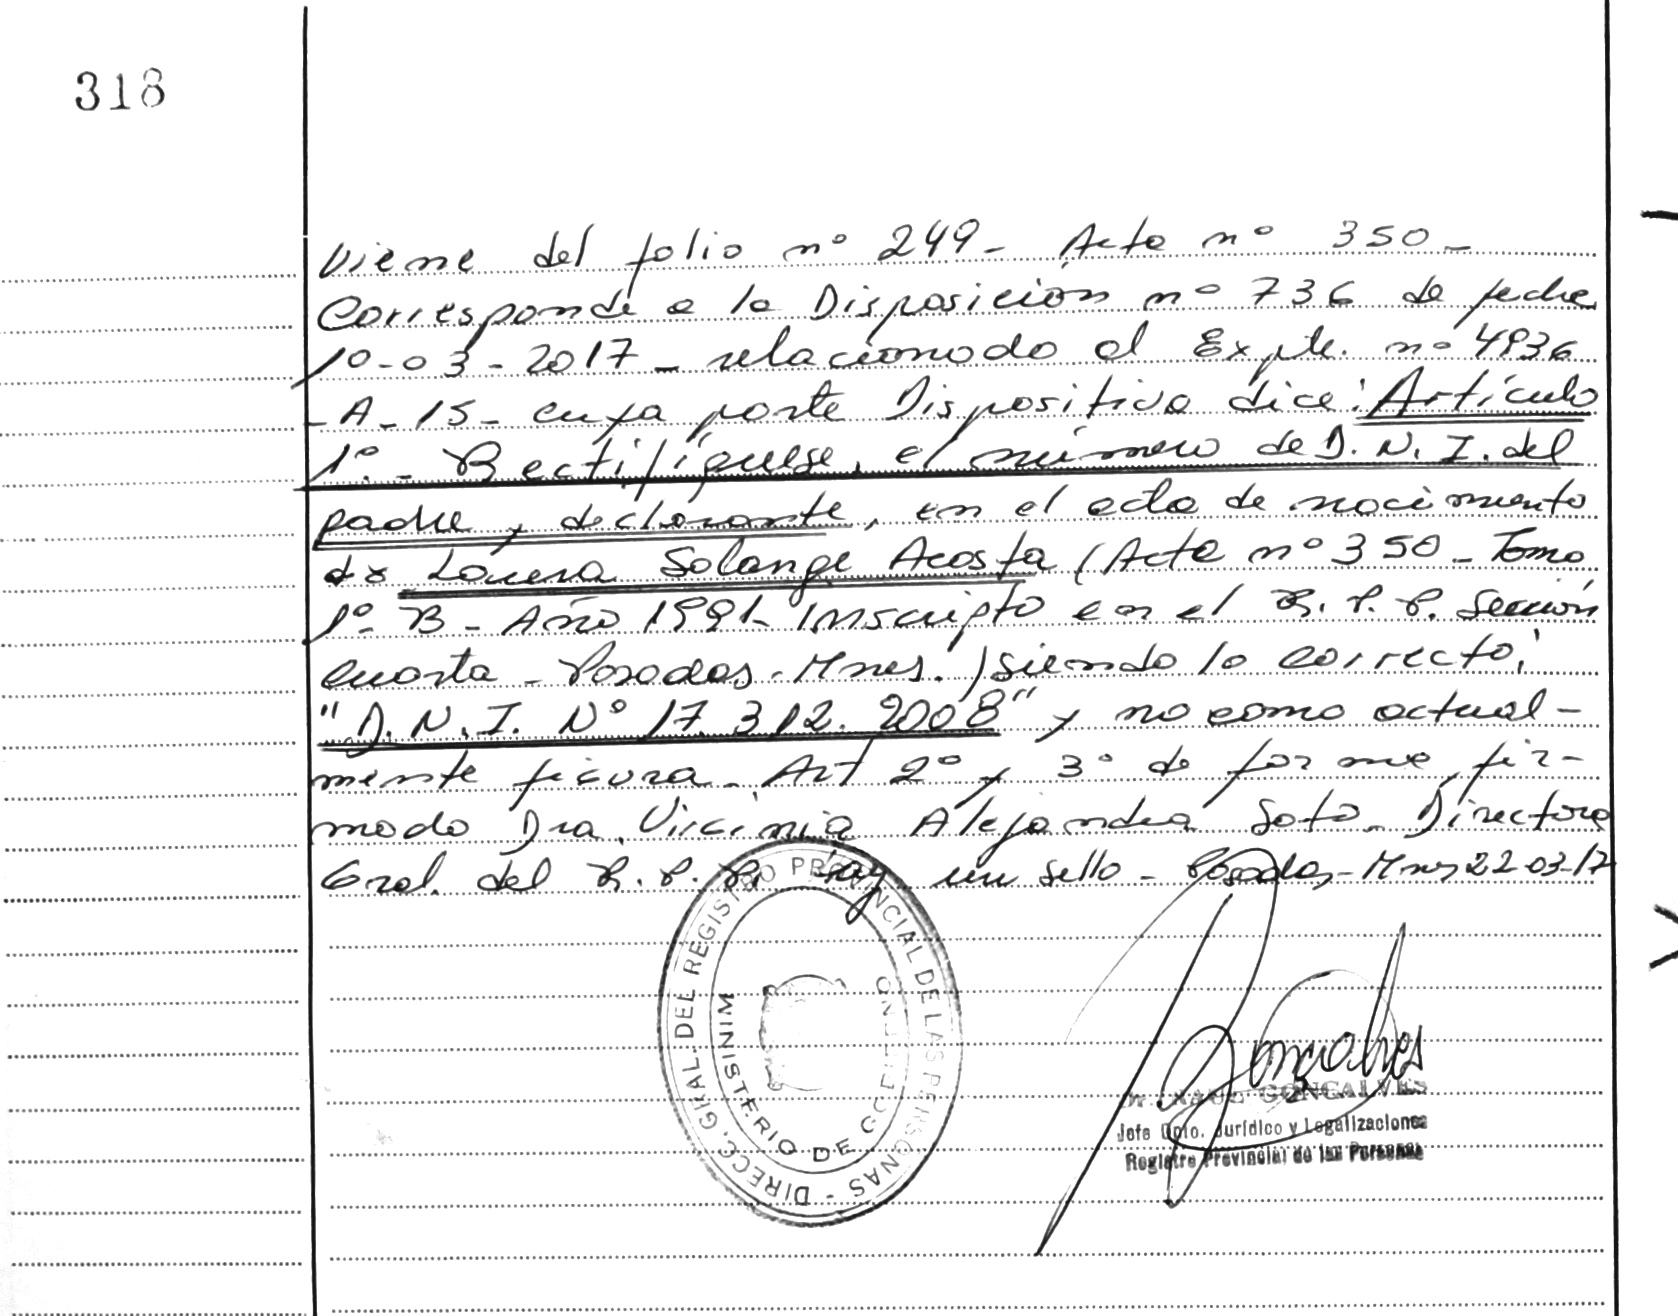 318
Viene del folio nº 249 - Acta nº 350 -
Corresponde a la Disposición nº 736 de fecha
10-03-2017 - relacionado al Expte. nº 4936
- A - 15 - cuya parte Dispositiva dice: Artículo
1º - Rectifíquese, el número de D.N.I. del
padre y declarante, en el acta de nacimiento
de Solange Acosta (Acta nº 350 - Tomo
1º B - Año 1991 - Inscripto en el R.P.P. Sección
Cuarta - Posadas - Mnes.) siendo lo correcto:
"D.N.I. Nº 17.312.2008" y no como actual-
mente figura - Art 2º y 3º de forma, fir-
mado Dra. Virginia Alejandra Soto - Directora
Gral. del R.P.P. Hay un sello - Posadas - Mnes 22-03-17
DIRECC. GRAL. DEL REGISTRO PROVINCIAL DE LAS PERSONAS -
MINISTERIO DE GOBIERNO
Goncalves
Dr. RAUL GONCALVES
Jefe Dpto. Jurídico y Legalizaciones
Registro Provincial de las Personas